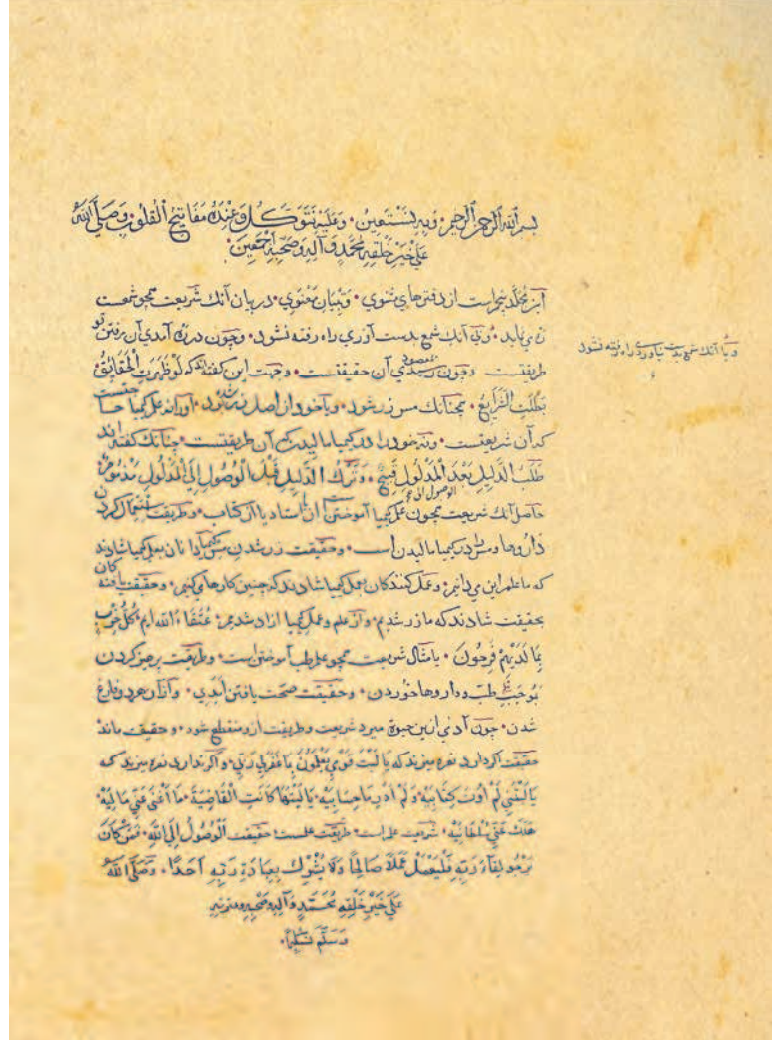 بسم الله الرحمن الرحيم وَبِهِ نَسْتَعِينُ وَعَلَيْهِ نَتَوَكَّلُ وَعِنْدَهُ مَفَاتِيحُ الْقُلُوبِ وَصَلَّى اللهُ
عَلَى خَيْرِ خَلْقِهِ مُحَمَّدٍ وَآلِهِ وَصَحْبِهِ أَجْمَعِينَ
این مجلد پنجم است از دفترهای مثنوی و تبیان معنوی در بیان آنک شریعت همچو شمعست
ره می نماید و بی آنک شمع بدست آوری راه رفته نشود و چون در ره آمدی آن رفتن تو
طریقتست و چون رسیدی بمقصود آن حقیقتست و جهت این گفته اند که لَوْ ظَهَرَتِ الْحَقَائِقُ
بَطَلَتِ الشَّرَائِعُ همچنانک مس زر شود و یا خود از اصل زر بود او را نه علم کیمیا حاجتست
که آن شریعتست و نه خود را در کیمیا مالیدن که آن طریقتست چنانک گفته اند
طَلَبُ الدَّلِيلِ بَعْدَ الْوُصُولِ إِلَى الْمَدْلُولِ قَبِيحٌ وَتَرْكُ الدَّلِيلِ قَبْلَ الْوُصُولِ إِلَى الْمَدْلُولِ مَذْمُومٌ
حاصل آنک شریعت همچون علم کیمیا آموختن است از استاد یا از کتاب و طریقت استعمال کردن
داروها و مس را در کیمیا مالیدن است و حقیقت زر شدن مس کیمیا دانان بعلم کیمیا شادند
که ما علم این می دانیم و عمل کنندگان بعمل کیمیا شادند که چنین کارها می کنیم و حقیقت یافتگان
بحقیقت شادند که ما زر شدیم و از علم و عمل کیمیا آزاد شدیم عُتَقَاءُ الله ایم كُلُّ حِزْبٍ
بِمَا لَدَيْهِمْ فَرِحُونَ یا مثال شریعت همچو علم طب آموختن است و طریقت پرهیز کردن
بموجب طب و داروها خوردن و حقیقت صحت یافتن ابدی و از آن هر دو فارغ
شدن چون آدمی ازین حیوة میرد شریعت و طریقت ازو منقطع شود و حقیقت ماند
حقیقت اگر دارد نعره میزند که يَا لَيْتَ قَوْمِي يَعْلَمُونَ بِمَا غَفَرَ لِي رَبِّي و اگر ندارد نعره میزند که
يَا لَيْتَنِي لَمْ أُوتَ كِتَابِيَهْ وَلَمْ أَدْرِ مَا حِسَابِيَهْ يَا لَيْتَهَا كَانَتِ الْقَاضِيَةَ مَا أَغْنَى عَنِّي مَالِيَهْ
هَلَكَ عَنِّي سُلْطَانِيَهْ شریعت علم است طریقت عملست حقیقت الْوُصُولُ إِلَى اللهِ فَمَنْ كَانَ
يَرْجُو لِقَاءَ رَبِّهِ فَلْيَعْمَلْ عَمَلاً صَالِحًا وَلَا يُشْرِكْ بِعِبَادَةِ رَبِّهِ أَحَدًا وَصَلَّى اللهُ
عَلَى خَيْرِ خَلْقِهِ مُحَمَّدٍ وَآلِهِ وَصَحْبِهِ وعترته
وَسَلَّمَ تَسْلِيمًا
آنک شمع بدست نیاوری راه رفته نشود